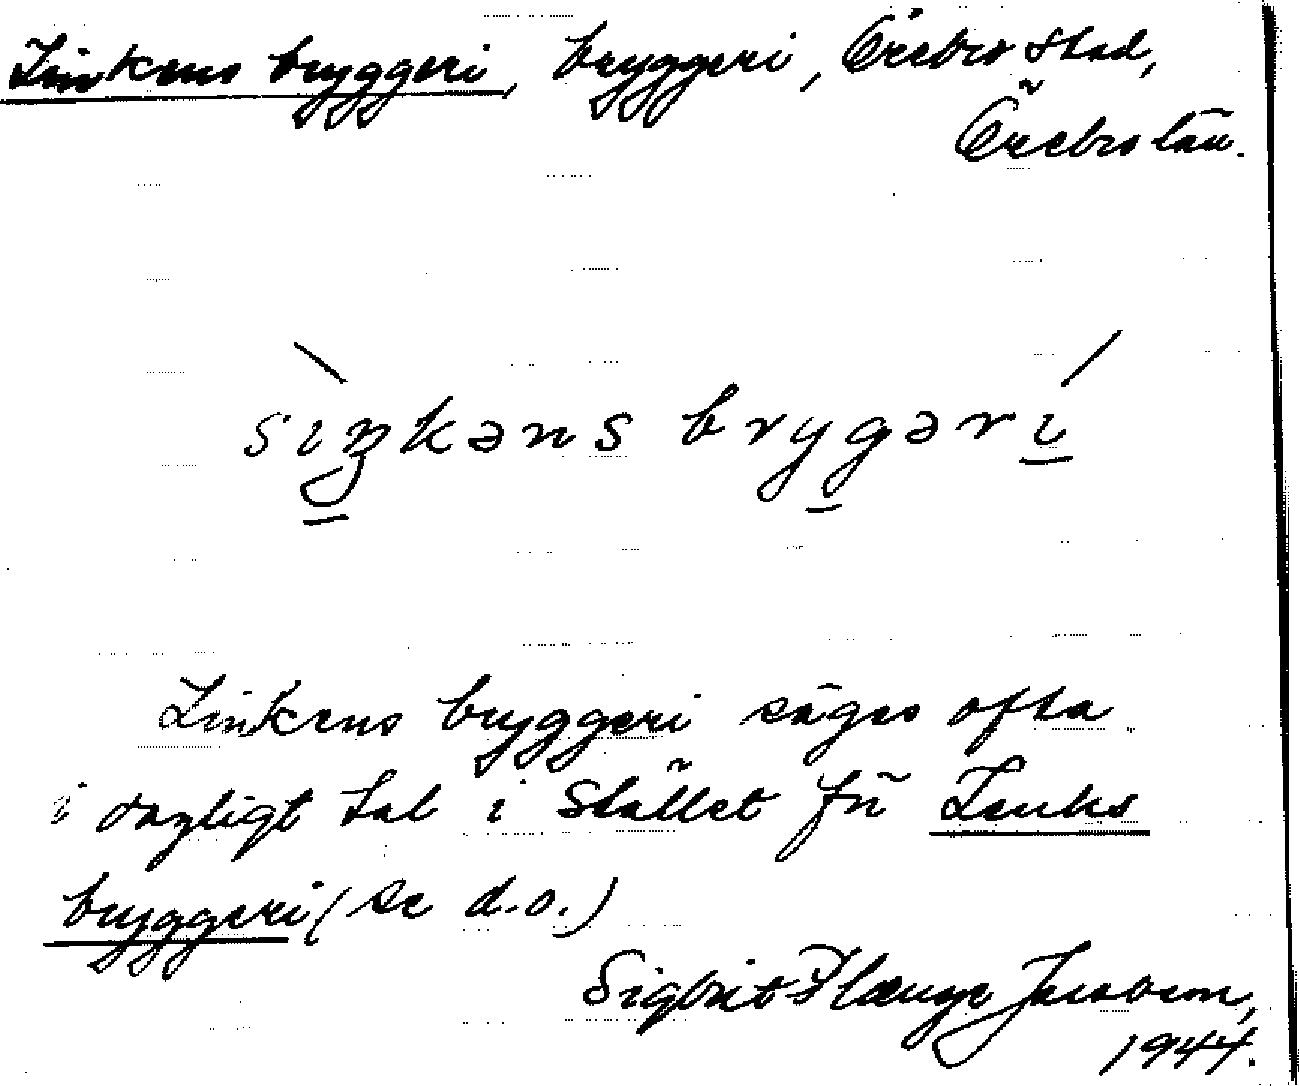 Zinkens bryggeri, bryggeri, Örebro stad,
Örebro län.
siŋkəns brygəri
Zinkens bryggeri säges ofta
i dagligt tal i stället för Zinks
bryggeri (se d.o.)
Sigbrit Plænge Jacobson,
1944.